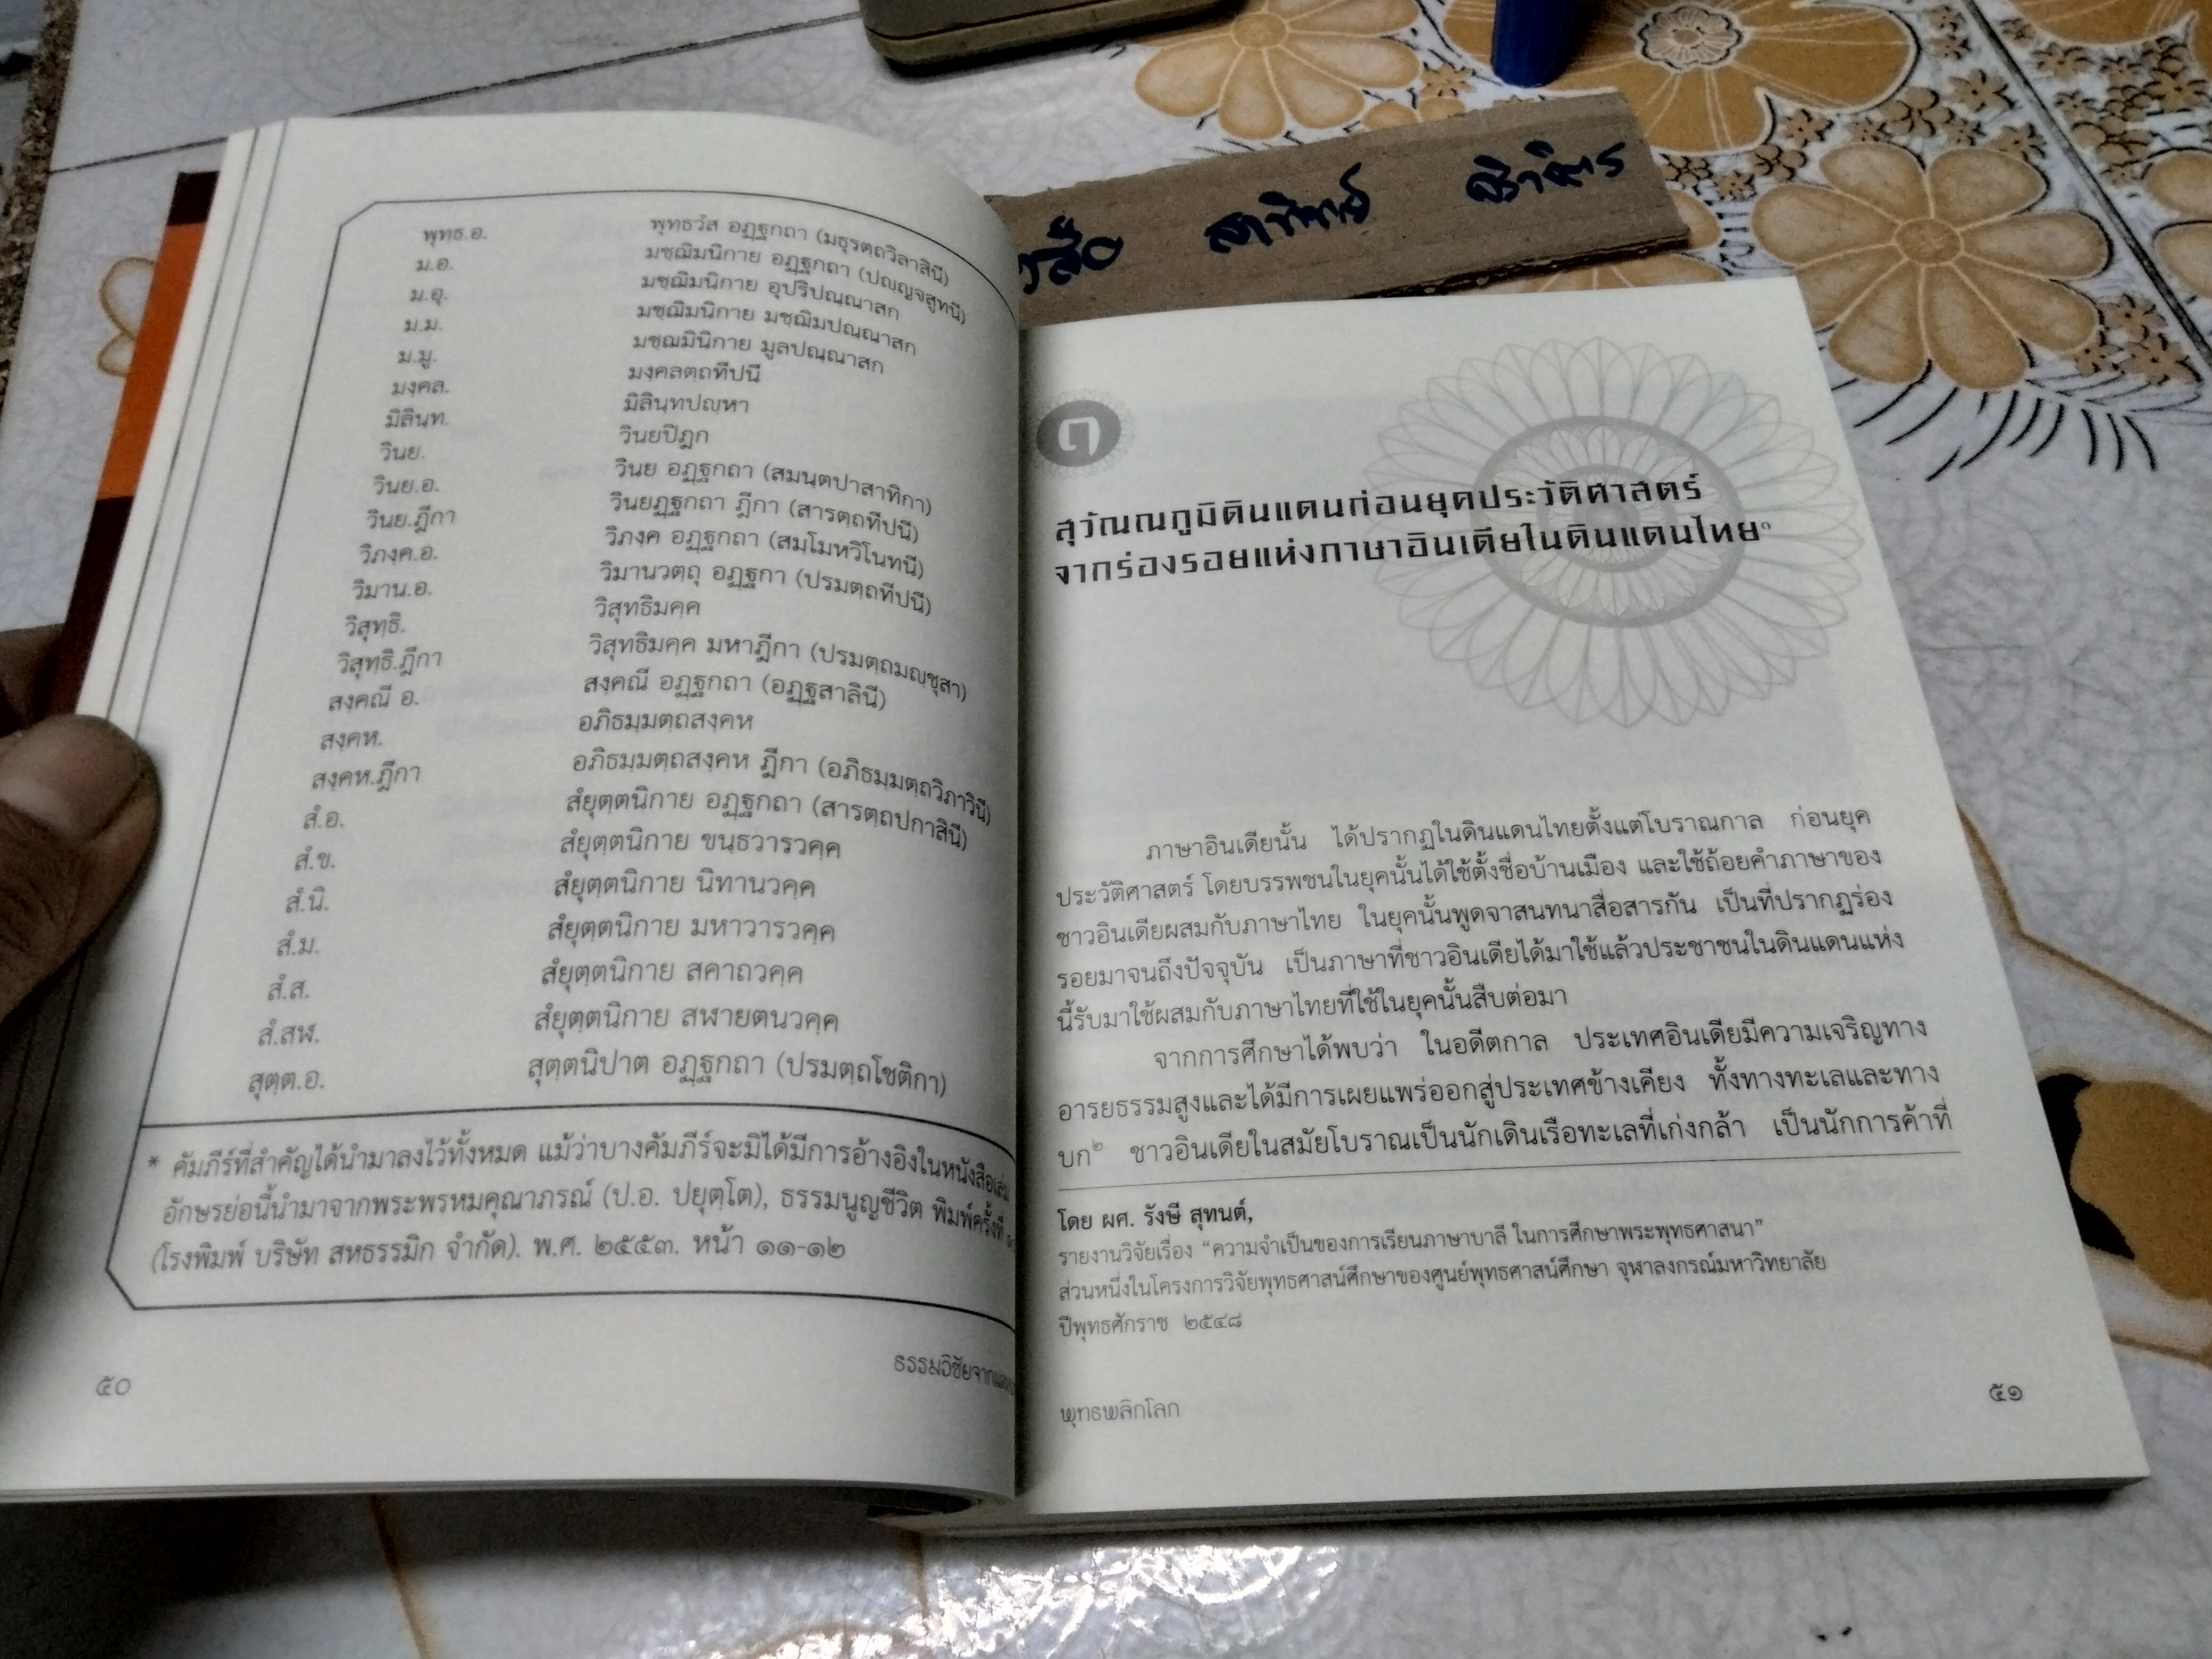 พุทฺธ.อ. พุทธวํส อฏฺฐกถา (มธุรตฺถวิลาสินี)
ม.อ. มชฺฌิมนิกาย อฏฺฐกถา (ปญฺญจสูทนี)
ม.อุ. มชฺฌิมนิกาย อุปริปณฺณาสก
ม.ม. มชฺฌิมนิกาย มชฺฌิมปณฺณาสก
ม.มู. มชฺฌมินิกาย มูลปณฺณาสก
มงฺคล. มงฺคลตฺถทีปนี
มิลินฺท. มิลินฺทปญฺหา
วินย. วินยปิฎก
วินย.อ. วินย อฏฺฐกถา (สมนฺตปาสาทิกา)
วินย.ฎีกา วินยฏฺฐกถา ฎีกา (สารตฺถทีปนี)
วิภงฺค.อ. วิภงฺค อฏฺฐกถา (สมฺโมหวิโนทนี)
วิมาน.อ. วิมานวตฺถุ อฏฺฐกา (ปรมตฺถทีปนี)
วิสุทฺธิ. วิสุทธิมคฺค
วิสุทฺธิ.ฎีกา วิสุทธิมคฺค มหาฎีกา (ปรมตฺถมญฺชุสา)
สงฺคณี อ. สงฺคณี อฏฺฐกถา (อฏฺฐสาลินี)
สงฺคห. อภิธมฺมตฺถสงฺคห
สงฺคห.ฎีกา อภิธมฺมตฺถสงฺคห ฎีกา (อภิธมฺมตฺถวิภาวินี)
สํ.อ. สํยุตฺตนิกาย อฏฺฐกถา (สารตฺถปกาสินี)
สํ.ข. สํยุตฺตนิกาย ขนฺธวารวคฺค
สํ.นิ. สํยุตฺตนิกาย นิทานวคฺค
สํ.ม. สํยุตฺตนิกาย มหาวารวคฺค
สํ.ส. สํยุตฺตนิกาย สคาถวคฺค
สํ.สฬ. สํยุตฺตนิกาย สฬายตนวคฺค
สุตฺต.อ. สุตฺตนิปาต อฏฺฐกถา (ปรมตฺถโชติกา)
* คัมภีร์ที่สำคัญได้นำมาลงไว้ทั้งหมด แม้ว่าบางคัมภีร์จะมิได้มีการอ้างอิงในหนังสือ
อักษรย่อนี้นำมาจากพระพรหมคุณาภรณ์ (ป.อ. ปยุตฺโต), ธรรมนูญชีวิต พิมพ์ครั้งที่
(โรงพิมพ์ บริษัท สหธรรมิก จำกัด). พ.ศ. ๒๕๕๓. หน้า ๑๑-๑๒
๕๐
ธรรมวิชัยจาก
๓
สุวัณณภูมิดินแดนก่อนยุคประวัติศาสตร์
จากร่องรอยแห่งภาษาอินเดียในดินแดนไทย๑
ภาษาอินเดียนั้น ได้ปรากฏในดินแดนไทยตั้งแต่โบราณกาล ก่อนยุค
ประวัติศาสตร์ โดยบรรพชนในยุคนั้นได้ใช้ตั้งชื่อบ้านเมือง และใช้ถ้อยคำภาษาของ
ชาวอินเดียผสมกับภาษาไทย ในยุคนั้นพูดจาสนทนาสื่อสารกัน เป็นที่ปรากฏร่อง
รอยมาจนถึงปัจจุบัน เป็นภาษาที่ชาวอินเดียได้มาใช้แล้วประชาชนในดินแดนแห่ง
นี้รับมาใช้ผสมกับภาษาไทยที่ใช้ในยุคนั้นสืบต่อมา
จากการศึกษาได้พบว่า ในอดีตกาล ประเทศอินเดียมีความเจริญทาง
อารยธรรมสูงและได้มีการเผยแพร่ออกสู่ประเทศข้างเคียง ทั้งทางทะเลและทาง
บก๒ ชาวอินเดียในสมัยโบราณเป็นนักเดินเรือทะเลที่เก่งกล้า เป็นนักการค้าที่
โดย ผศ. รังษี สุทนต์,
รายงานวิจัยเรื่อง “ความจำเป็นของการเรียนภาษาบาลี ในการศึกษาพระพุทธศาสนา”
ส่วนหนึ่งในโครงการวิจัยพุทธศาสน์ศึกษาของศูนย์พุทธศาสน์ศึกษา จุฬาลงกรณ์มหาวิทยาลัย
ปีพุทธศักราช ๒๕๔๘
พุทธพลิกโลก
๕๑